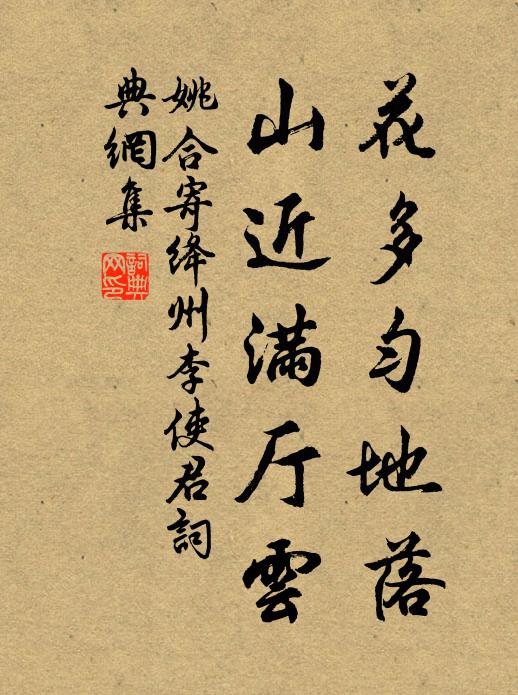 花多匀地落
山近满厅雲
姚合寄绛州李使君詞
典網集
詞典网印